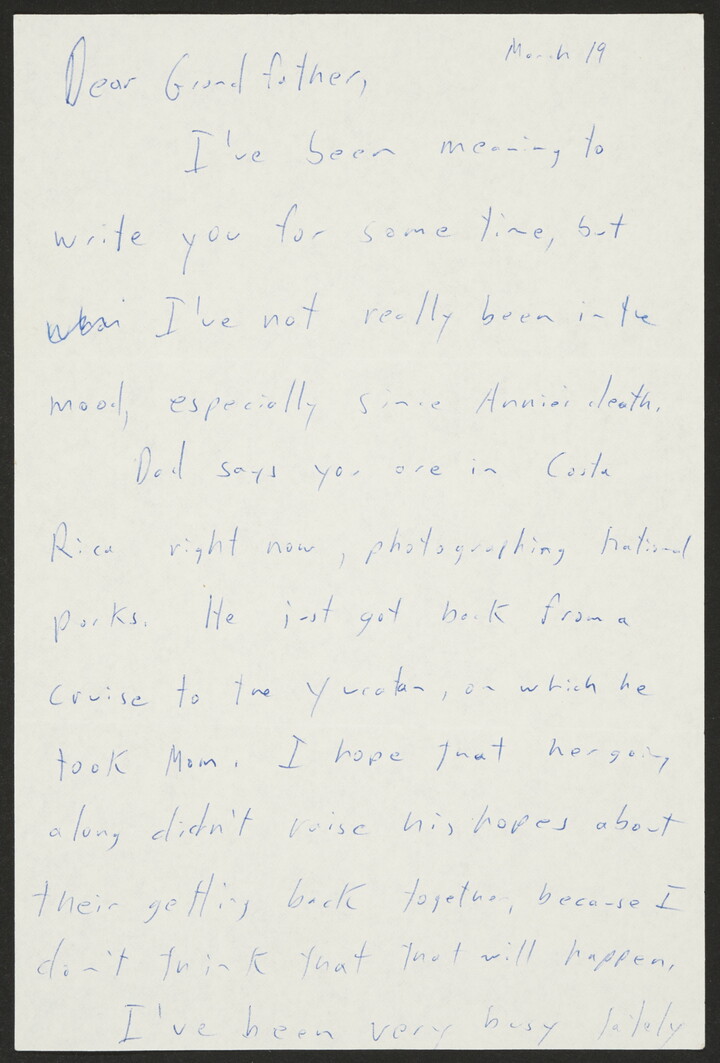 March 19
Dear Grandfather,
I've been meaning to
write you for some time, but
I've not really been in the
mood, especially since Annie's death.
Dad says you are in Costa
Rica right now, photographing national
parks. He just got back from a
cruise to the Yucatan, on which he
took Mom. I hope that her going
along didn't raise his hopes about
their getting back together, because I
don't think that that will happen.
I've been very busy lately